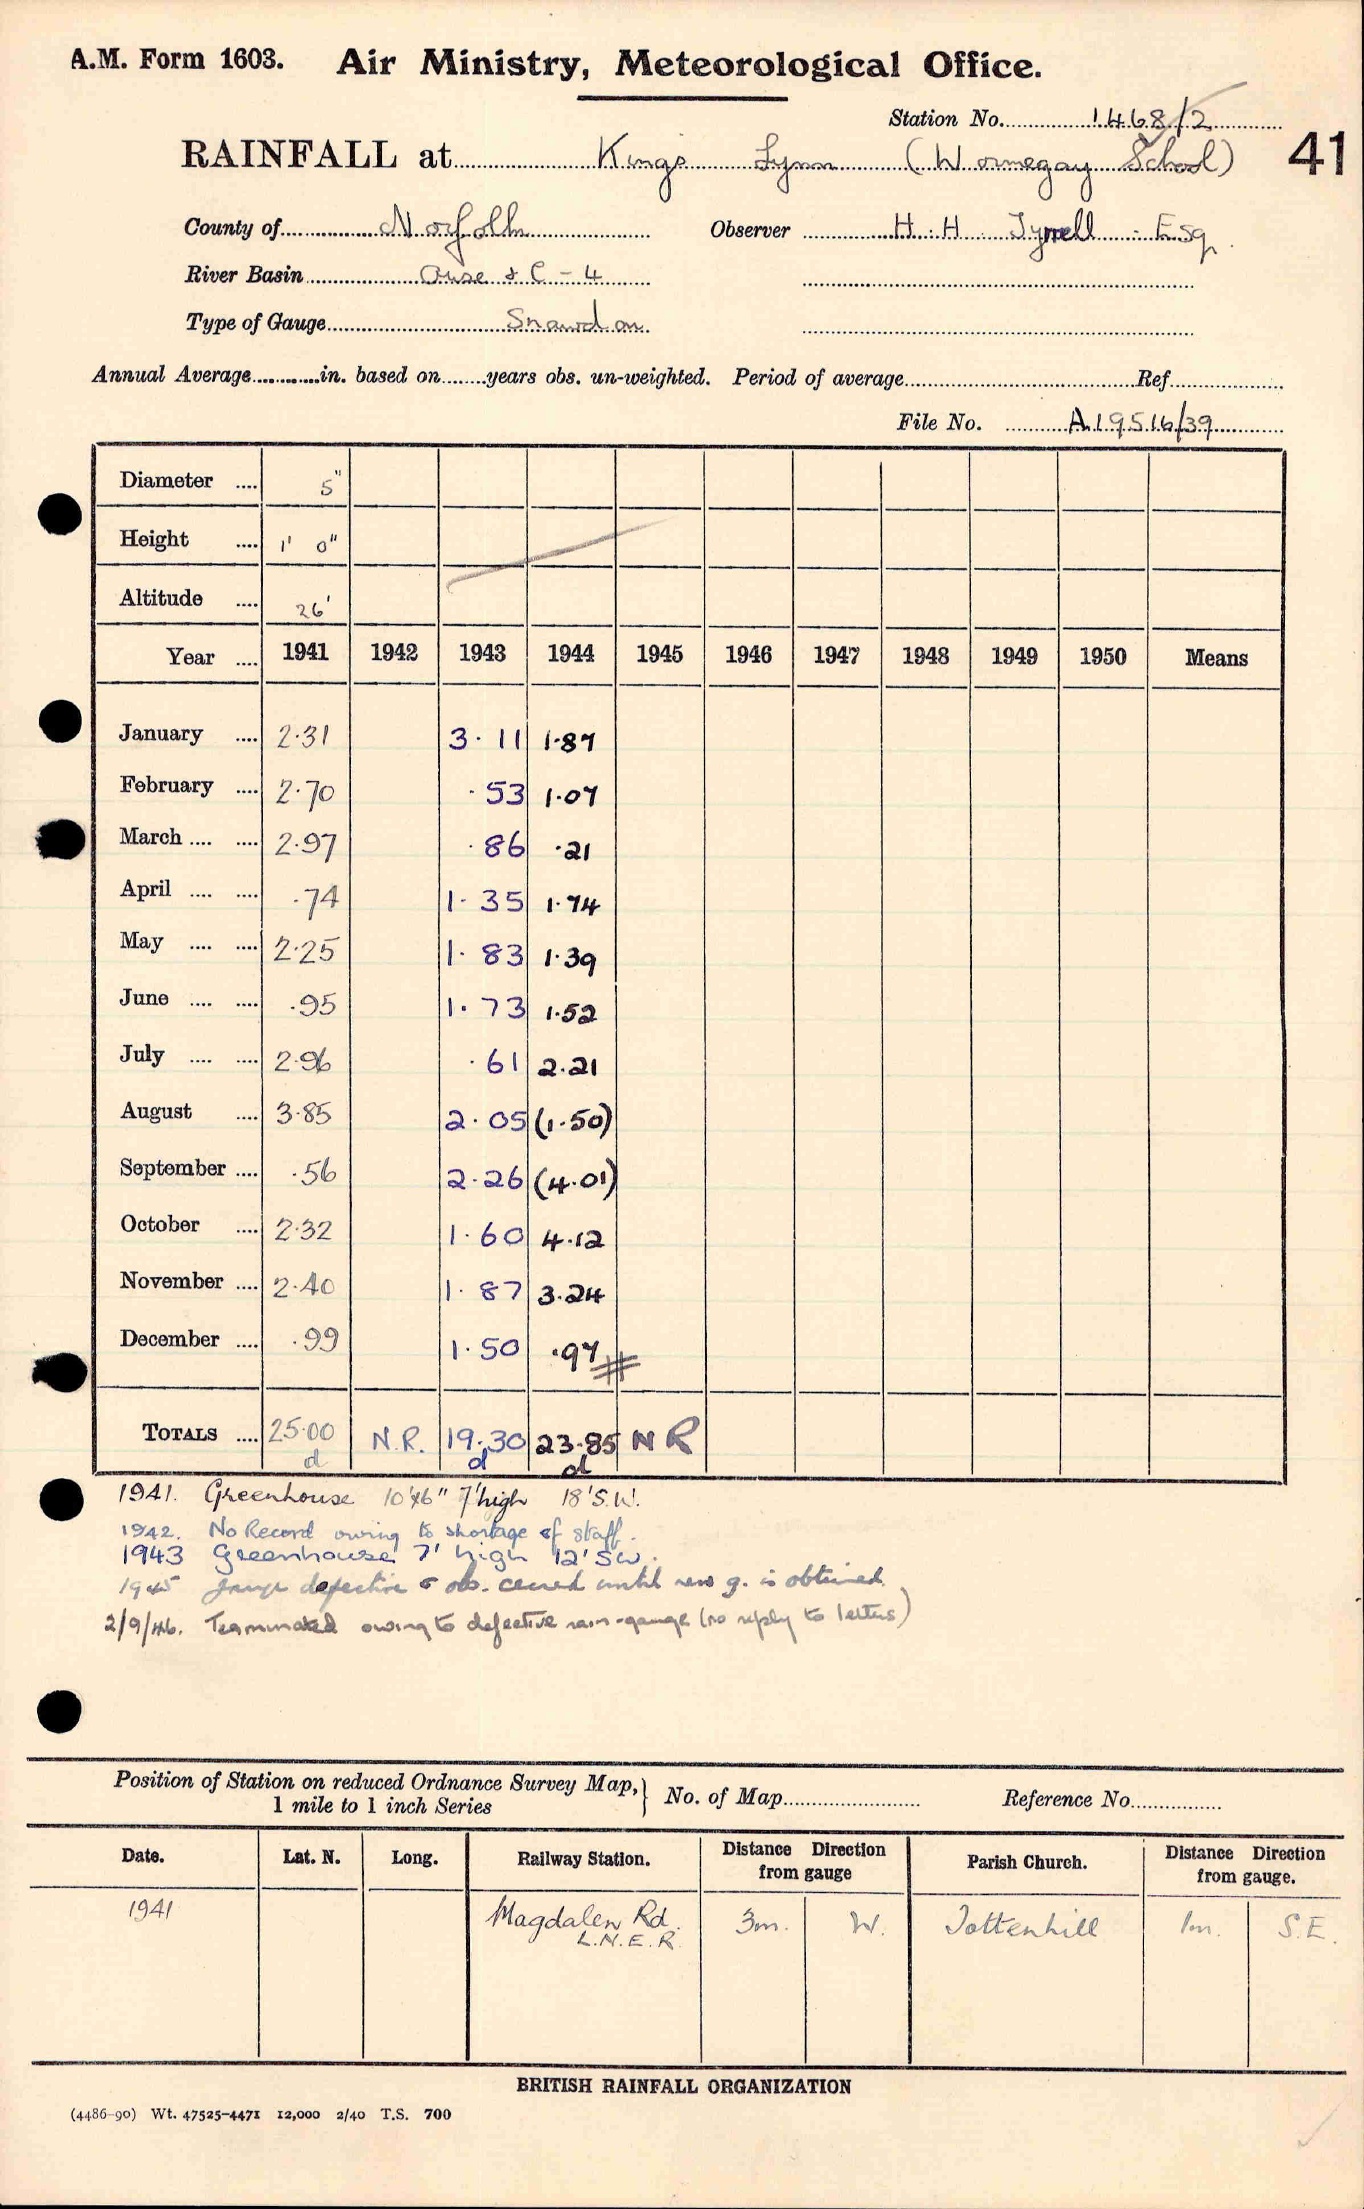 A.M. Form 1603. Air Ministry, Meteorological Office.
Station No. 1468/2
RAINFALL at Kings Lynn (Wormegay School) 41
County of Norfolk Observer H. H. Tyrrell Esq.
River Basin Ouse & C - 4
Type of Gauge Snowdon
Annual Average in. based on years obs. un-weighted. Period of average Ref
File No. A19516/39
Diameter .... 5"
Height .... 1' 0"
Altitude .... 26'
Year .... 1941 1942 1943 1944 1945 1946 1947 1948 1949 1950 Means
January .... 2.31 3.11 1.87
February .... 2.70 .53 1.07
March .... .... 2.97 .86 .21
April .... .... .74 1.35 1.74
May .... .... 2.25 1.83 1.39
June .... .... .95 1.73 1.52
July .... .... 2.96 .61 2.21
August .... 3.85 2.05 (1.50)
September .... .56 2.26 (4.01)
October .... 2.32 1.60 4.12
November .... 2.40 1.87 3.24
December .... .99 1.50 .97 #
TOTALS .... 25.00 N.R. 19.30 23.85 N R
d d d
1941. Greenhouse 10'x6" 7' high 18' S.W.
1942. No Record owing to shortage of staff.
1943 Greenhouse 7' high 12' SW.
1945 gauge defective & obs. ceased until new g. is obtained.
2/9/46. Terminated owing to defective rain-gauge (no reply to letters)
Position of Station on reduced Ordnance Survey Map, } No. of Map Reference No.
1 mile to 1 inch Series
Date. Lat. N. Long. Railway Station. Distance Direction from gauge Parish Church. Distance Direction from gauge.
1941 Magdalen Rd. 3m. W. Tottenhill 1m. S.E.
L.N.E.R.
BRITISH RAINFALL ORGANIZATION
(4486-90) Wt. 47525-4471 12,000 2/40 T.S. 700